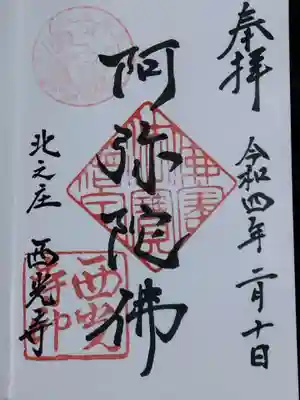 奉拝
令和四年二月十日
阿弥陀佛
北之庄 西光寺